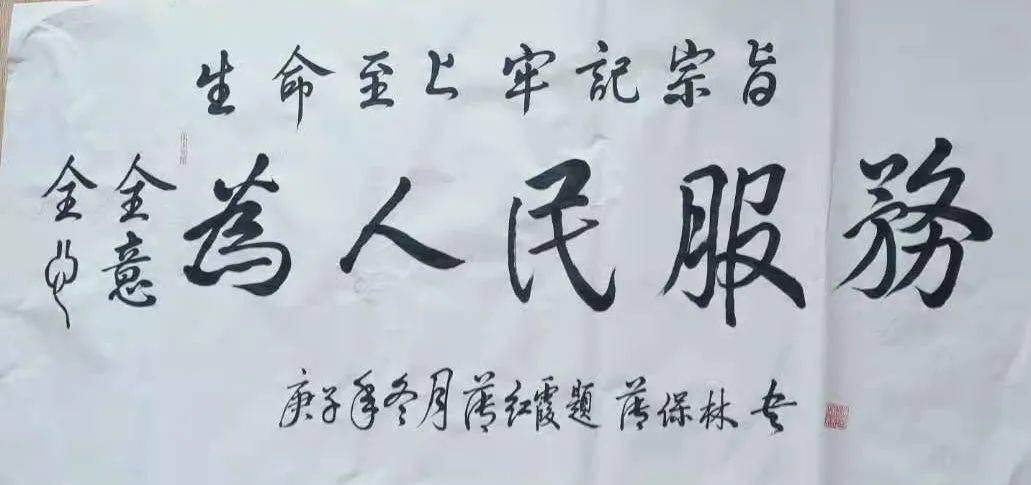 生命至上牢記宗旨
全心
全意
為人民服務
庚子年冬月 红霞題 保林书